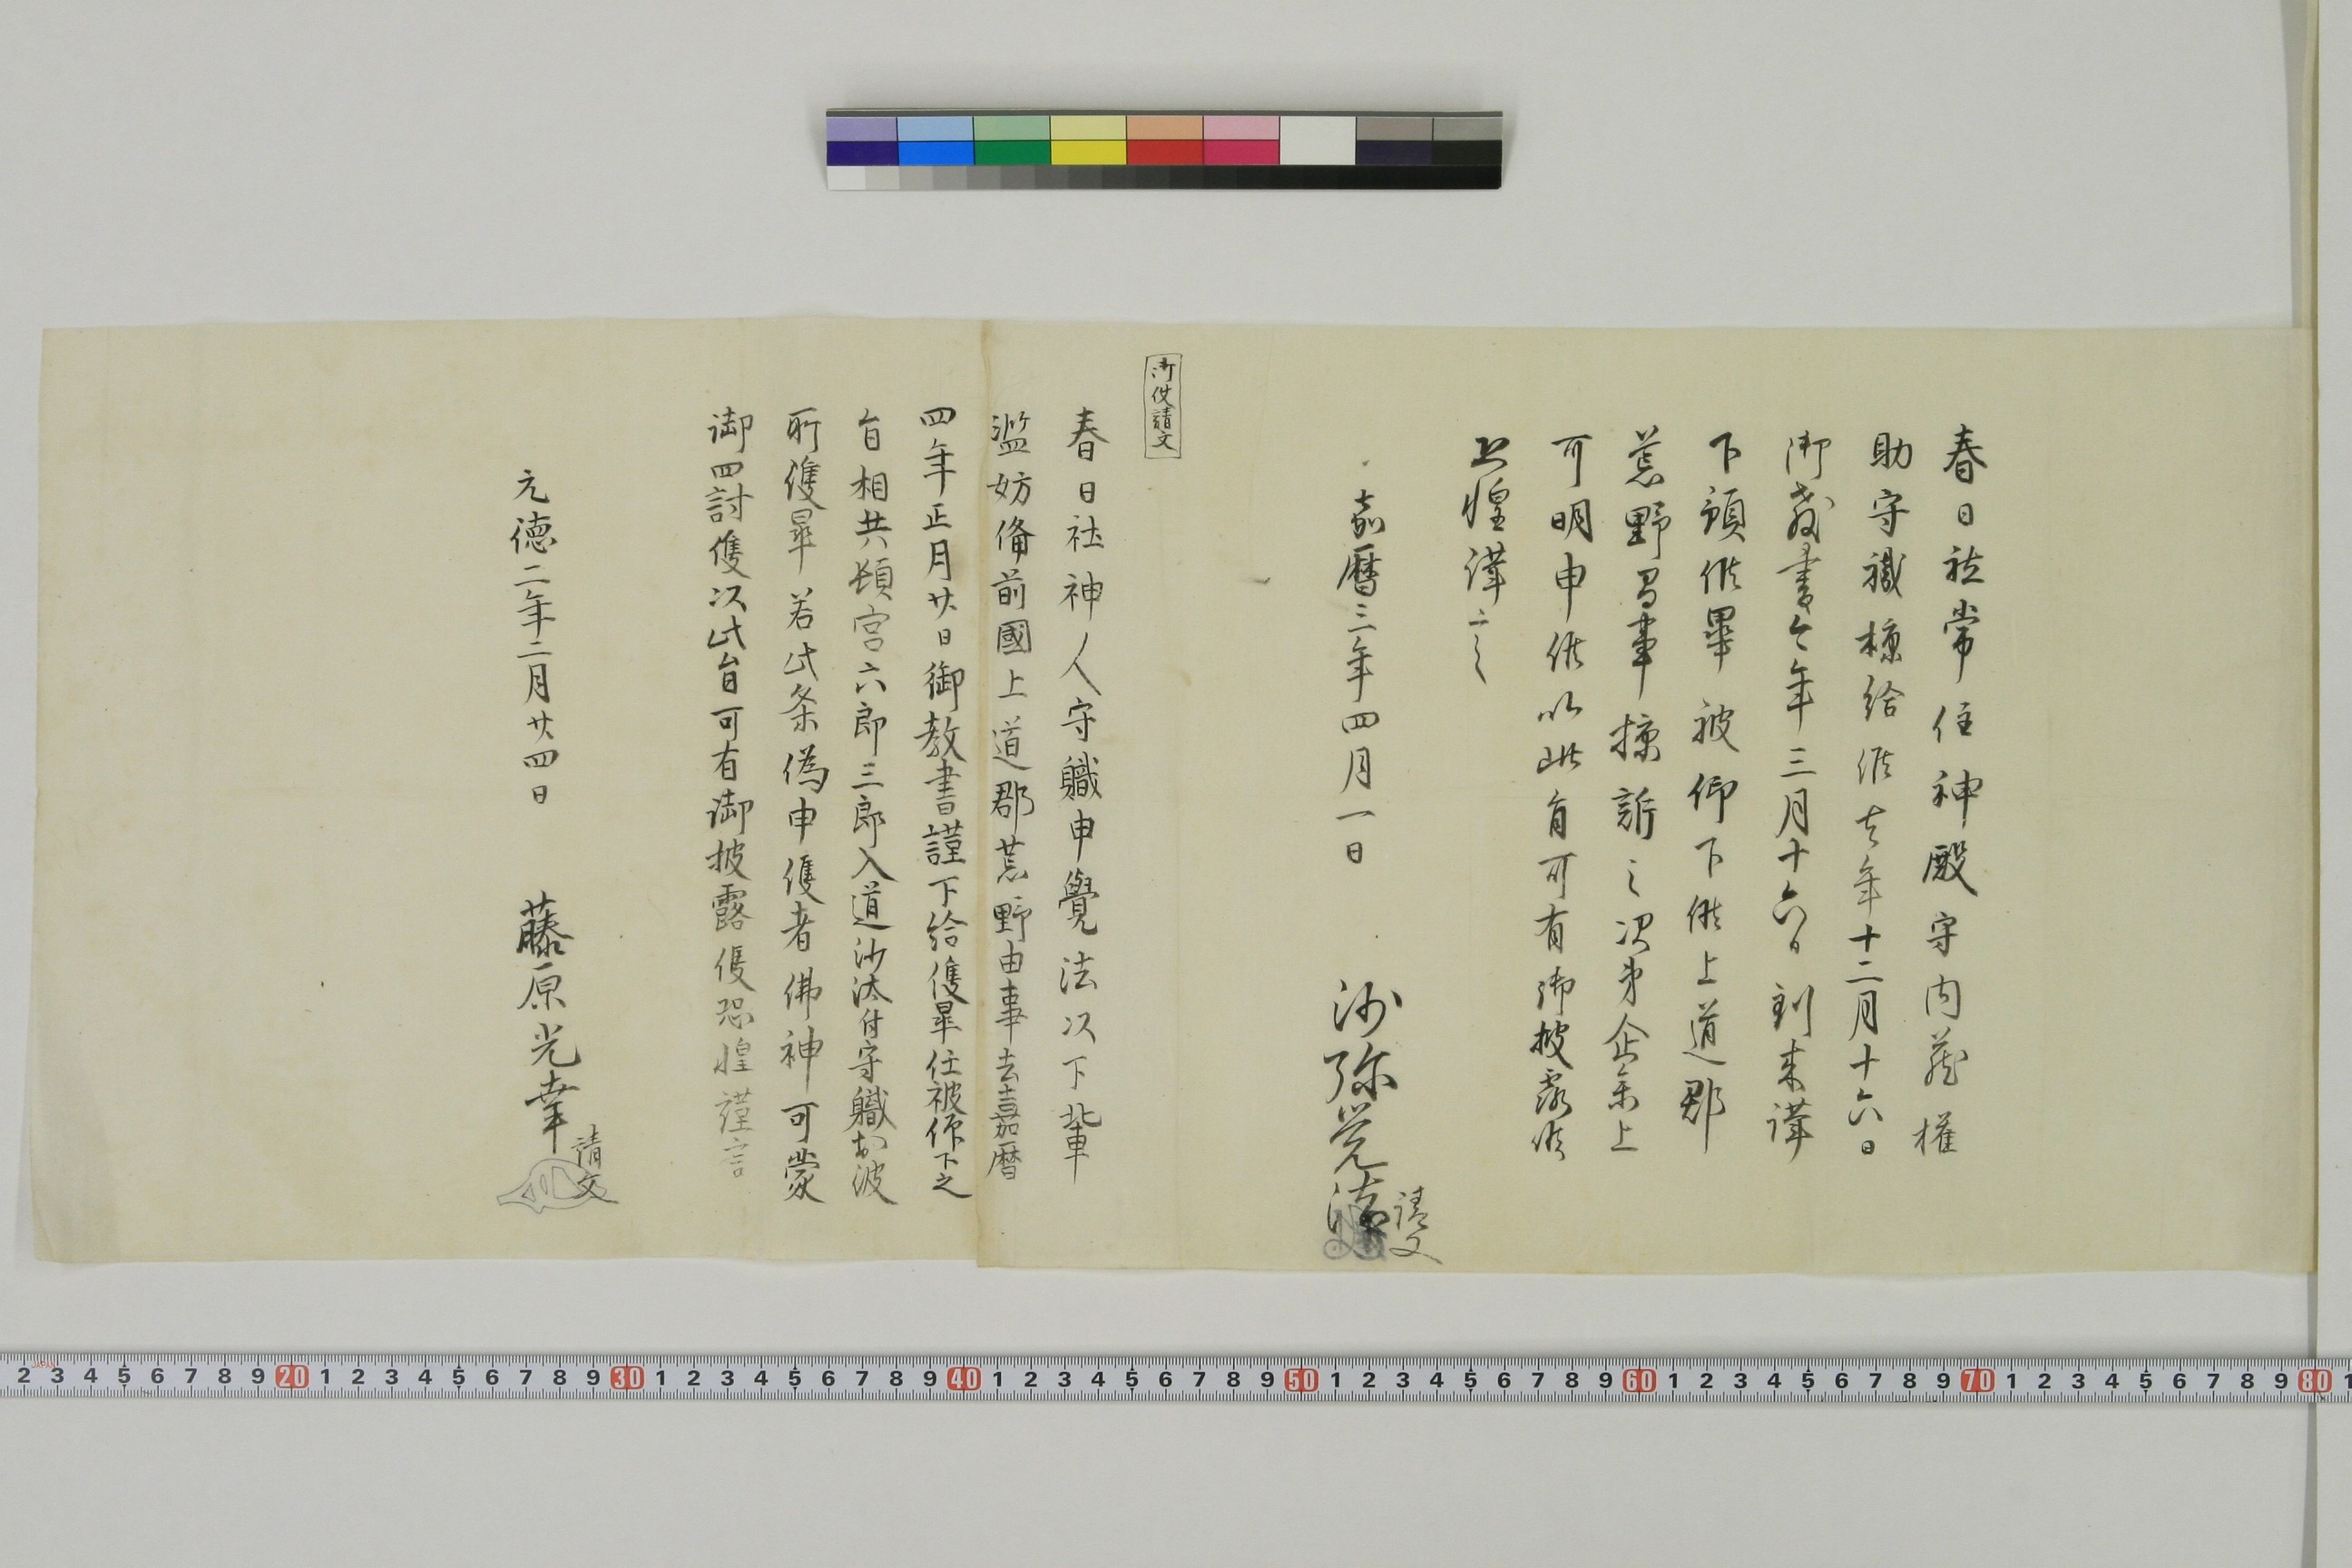 春日社常住神殿守内蔵権
助守職掠給候去年十二月十六日
御教書今年三月十六日到来謹
下預候畢被仰下候上道郡
荒野由事掠訴之次第企参上
可明申候以此旨可有御披露候
恐惶謹言
嘉暦三年四月一日 沙弥覚法
請文
御使請文
春日社神人守職申覺法以下輩
濫妨備前國上道郡荒野由事去嘉暦
四年正月廿日御教書謹下給候畢任被仰下之
旨相共頓宮六郎三郎入道沙汰付守職於彼
所候畢若此条偽申候者佛神可蒙
御罰候以此旨可有御披露候恐惶謹言
元徳二年二月廿四日 藤原光幸
請文
JAPAN
2 3 4 5 6 7 8 9 20 1 2 3 4 5 6 7 8 9 30 1 2 3 4 5 6 7 8 9 40 1 2 3 4 5 6 7 8 9 50 1 2 3 4 5 6 7 8 9 60 1 2 3 4 5 6 7 8 9 70 1 2 3 4 5 6 7 8 9 80 1